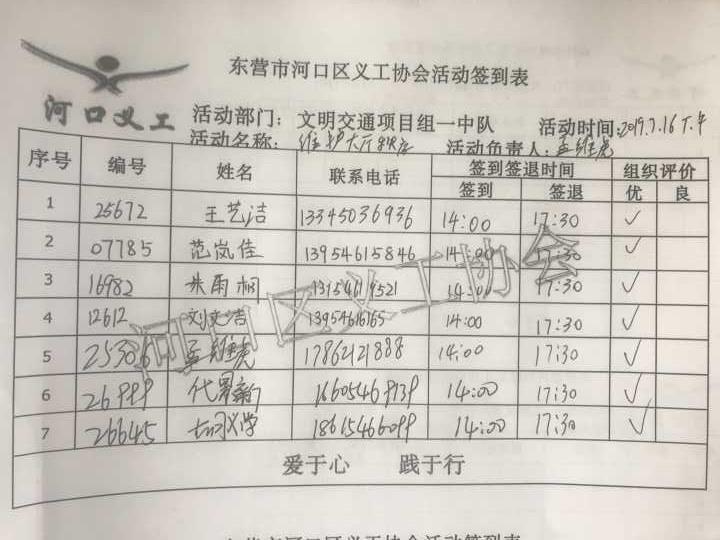 东营市河口区义工协会活动签到表
河口义工
活动部门: 文明交通项目组一中队 活动时间:2019.7.16下午
活动名称: 维护大厅秩序 活动负责人: 孟维虎
序号 编号 姓名 联系电话 签到签退时间 组织评价
签到 签退 优 良
1 25672 王艺洁 13345036936 14:00 17:30 ✓
2 07785 范岚佳 13954615846 14:00 17:30 ✓
3 16982 朱雨桐 14:00 17:30 ✓
4 12612 刘文洁 13954616165 14:00 17:30 ✓
5 25306 孟维虎 17862121888 14:00 17:30 ✓
6 14:00 17:30 ✓
7 26645 14:00 17:30 ✓
河口区义工协会
爱于心 践于行
东营市河口区义工协会活动签到表